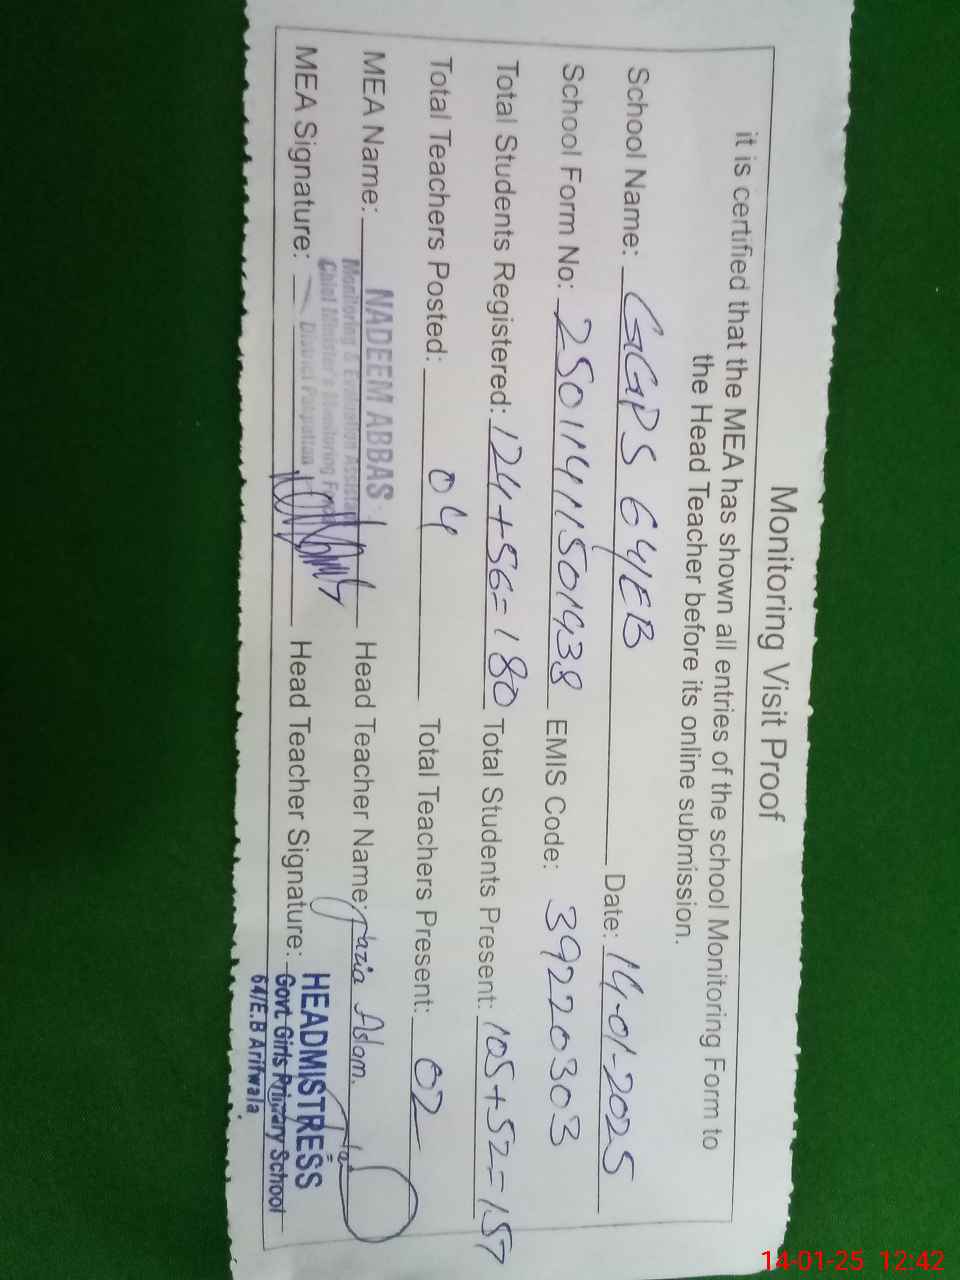 Monitoring Visit Proof
it is certified that the MEA has shown all entries of the school Monitoring Form to
the Head Teacher before its online submission.
School Name: GGPS 64/EB Date: 14-01-2025
School Form No: 25011411501938 EMIS Code: 39220303
Total Students Registered: 124+56=180 Total Students Present: 105+52=157
Total Teachers Posted: 04 Total Teachers Present: 02
MEA Name: NADEEM ABBAS Head Teacher Name: Nazia Aslam.
Monitoring & Evaluation Assistant
Chief Minister's Monitoring Force
District Pakpattan
MEA Signature: Head Teacher Signature:
HEADMISTRESS
Govt. Girls Primary School
64/E.B Arifwala
14-01-25 12:42